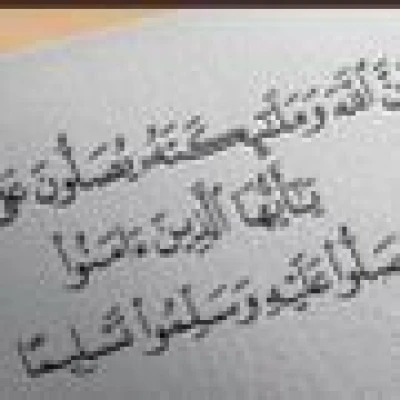 نَّ ٱللَّهَ وَمَلَٰٓئِكَتَهُۥ يُصَلُّونَ عَلَى
يَٰٓأَيُّهَا ٱلَّذِينَ ءَامَنُوا۟
صَلُّوا۟ عَلَيْهِ وَسَلِّمُوا۟ تَسْلِيمًا